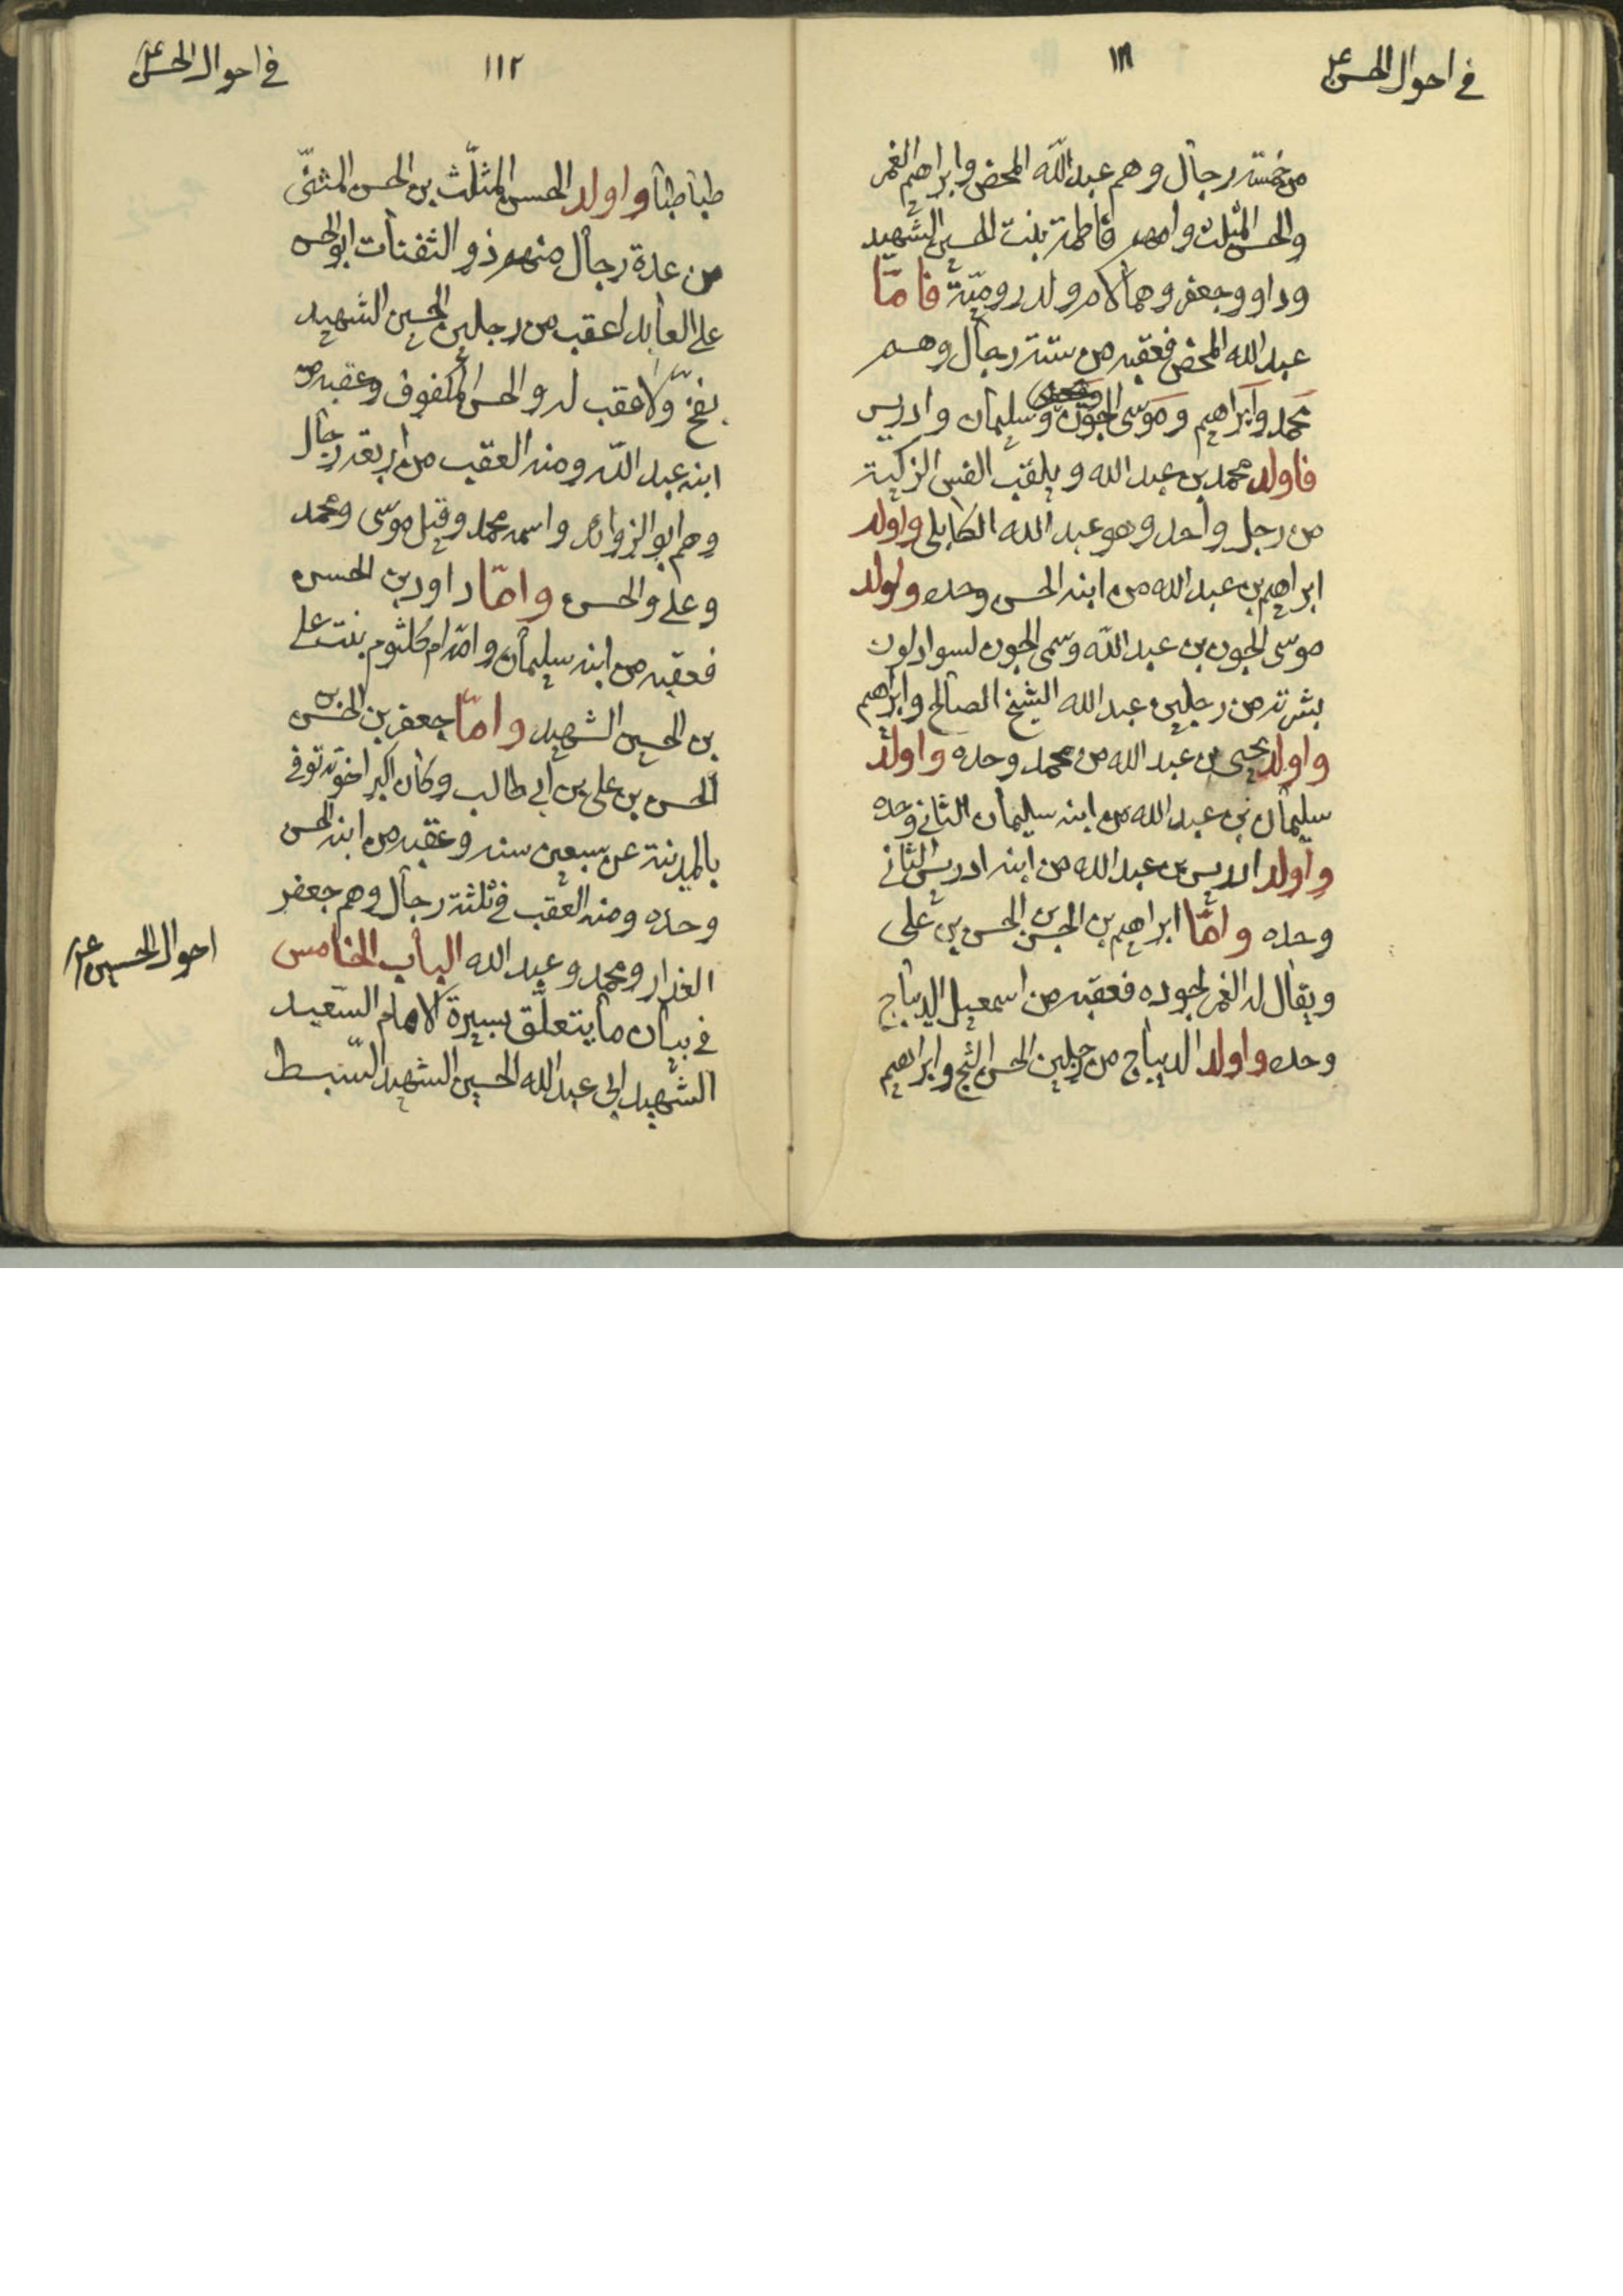 في احوال الحسن ع
١١١
من خمسة رجال وهم عبد الله المحض وابراهيم الغمر
والحسن المثلث وامهم فاطمة بنت الحسين الشهيد
وداود وجعفر وهما لام ولد رومية فامّا
عبد الله المحض فعقبه من ستة رجال وهم
محمد وابراهيم وموسى الجون ويحيى وسليمان وادريس
فاولد محمد بن عبد الله ويلقب النفس الزكية
من رجل واحد وهو عبد الله الكابلي واولد
ابراهيم بن عبد الله من ابنه الحسن وحده واولد
موسى الجون بن عبد الله وسمى الجون لسواد لون
بشرته من رجلين عبد الله الشيخ الصالح وابراهيم
واولد يحيى بن عبد الله من محمد وحده واولد
سليمان بن عبد الله من ابنه سليمان الثاني وحده
واولد ادريس بن عبد الله من ابنه ادريس الثاني
وحده وامّا ابراهيم بن الحسن بن الحسن بن على
ويقال له الغمر لجوده فعقبه من اسمعيل الديباج
وحده واولد الديباج من رجلين الحسن التج وابراهيم
١١٢
في احوال الحسن ع
طباطبا واولد الحسن المثلّث بن الحسن المثنّى
من عدة رجال منهم ذو الثفنات ابو الحسن
علي العابد اعقب من رجلين الحسين الشهيد
بفخّ ولا عقب له والحسن المكفوف وعقبه من
ابنه عبد الله ومنه العقب من اربعة رجال
وهم ابو الزوائد واسمه محمد وقيل موسى ومحمد
وعلي والحسن وامّا داود بن الحسن
فعقبه من ابنه سليمان وامّه ام كلثوم بنت علي
بن الحسين الشهيد وامّا جعفر بن الحسن بن
الحسن بن على بن ابي طالب وكان اكبر اخوته توفي
بالمدينة عن سبعين سنه وعقبه من ابنه الحسن
وحده ومنه العقب في ثلثة رجال وهم جعفر
الغدار ومحمد وعبد الله الباب الخامس
في بيان ما يتعلّق بسيرة الامام السّعيد
الشهيد ابي عبد الله الحسين الشهيد السّبط
احوال الحسين ع